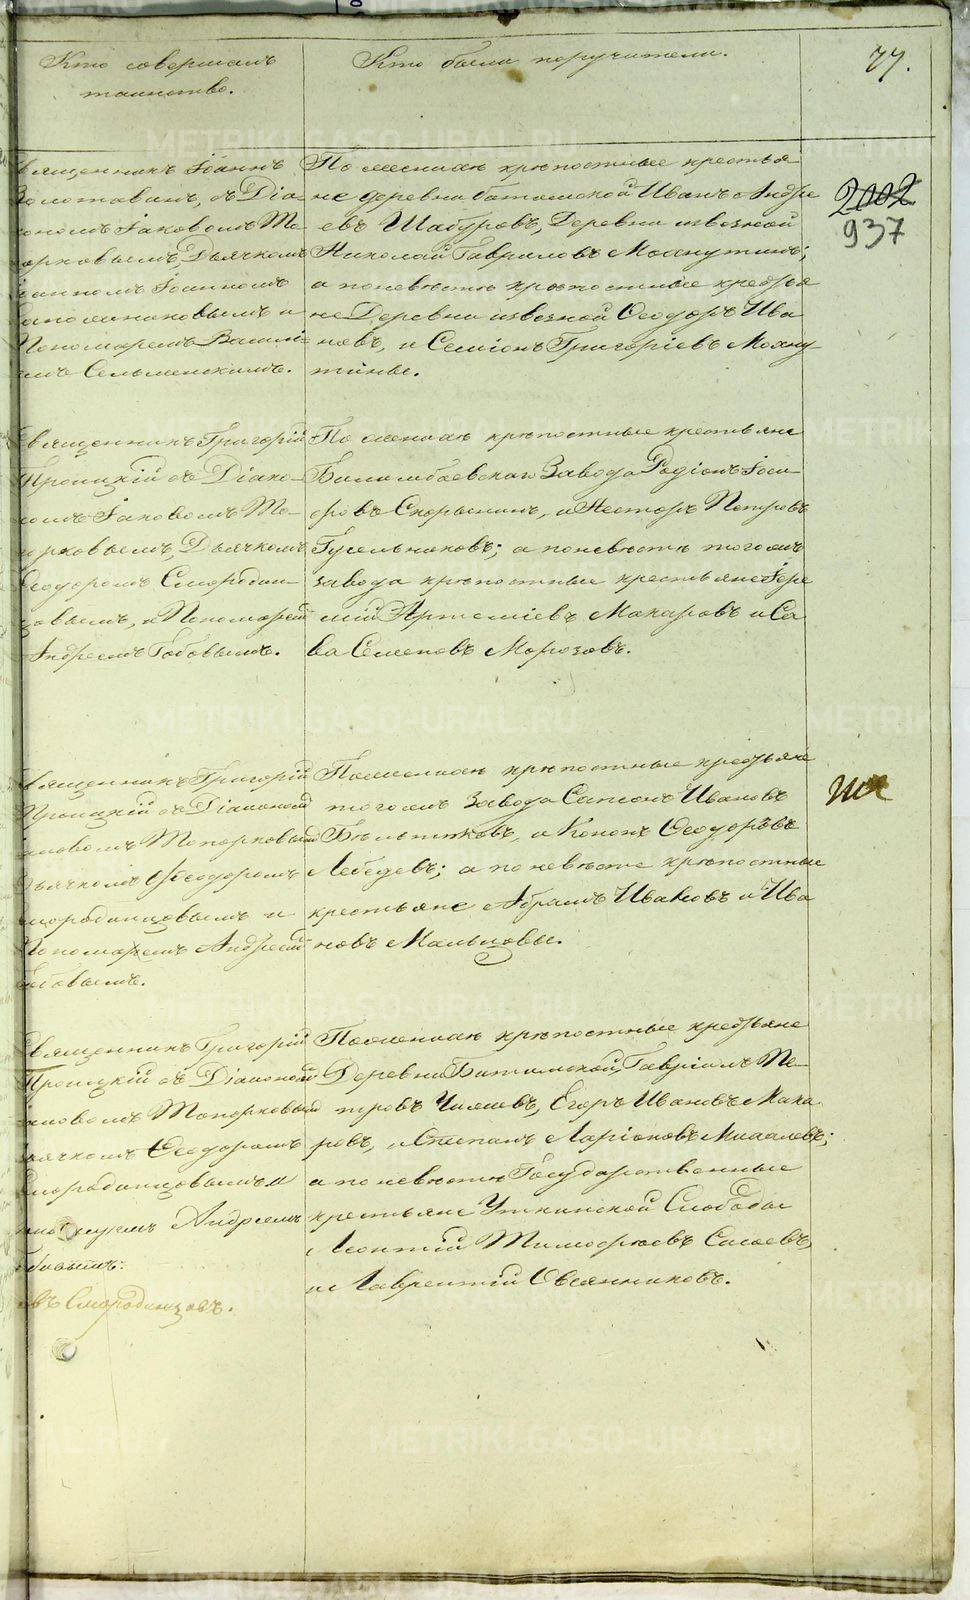 Кто совершалъ
таинство.
Кто были поручители.
77.
2002
937
вященникъ Іоаннъ
Золотавинъ, съ Діа-
кономъ Іаковомъ То-
порковымъ, Дьячкомъ
Іоанномъ Іоанномъ
и
Пономаремъ Васил-
емъ Сельменскимъ.
По женихѣ крѣпостные крестья
не деревни битимской Иванъ Андре
евъ Шабуровъ, Деревни извезной
Николай Гавриловъ Мохнуткинъ;
а по невѣстѣ крѣпостные крестья
не Деревни извезной Ѳеодоръ Ива
новъ, и Семіонъ Григоріевъ Мохну-
тины.
вященникъ Григорій
Троицкій съ Діако-
номъ Іаковомъ То-
порковымъ, Дьячкомъ
Ѳеодоромъ Смородин-
цовымъ, и Пономаремъ
Андреемъ Бабовымъ.
По женихѣ крѣпостные крестьяне
Билимбаевскаго Завода Родіонъ Іоси-
фовъ Скорынинъ, и Несторъ Петровъ
Гусельниковъ; а по невѣстѣ тогожъ
завода крѣпостные крестьяне Іере
мій Артеміевъ Макаровъ и Са
ва Семеновъ Морозовъ.
вященникъ Григорій
Троицкій съ Діакономъ
Іаковомъ Топорковымъ
Дьячкомъ Ѳеодоромъ
Смородинцовымъ и
Пономаремъ Андреемъ
Бабовымъ.
По женихѣ крѣпостные крестьяне
тогожъ Завода Сапсонъ Ивановъ
Бѣлытковъ, и Кононъ Ѳеодоровъ
Лебедевъ; а по невѣстѣ крѣпостные
крестьяне Абрамъ Ивановъ и Ива
новъ Мальцовы.
вященникъ Григорій
Троицкій съ Діакономъ
Іаковомъ Топорковымъ
Дьячкомъ Ѳеодоромъ
Смородинцовымъ и
Пономаремъ Андреемъ
Бабовымъ.
въ Смородинцовъ.
По женихѣ крѣпостные крестьяне
Деревни Битимской, Гавріилъ Пе-
тровъ Чижевъ, Егоръ Ивановъ Мака
ровъ, и Степанъ Ларіоновъ Михалевъ;
а по невѣстѣ Государственные
крестьяне Уткинской Слободы
Леонтій Тимофеевъ Сысоевъ
и Лаврентій Овсянниковъ.
METRIKI.GASO-URAL.RU